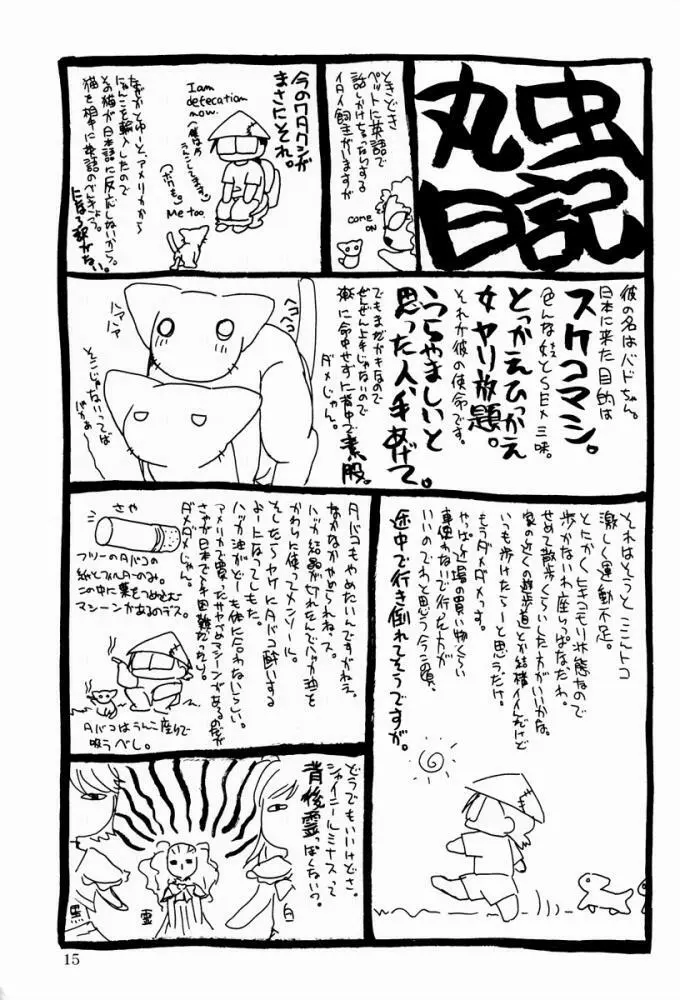 丸虫
日記
ときどき
ペットに英語で
話しかけちゃったりする
イタイ飼主がいますが
come
on
今のワタクシが
まさにそれ。
I am
defecation
now.
Me too.
なぜかとゆーとアメリカから
にゃんこを輸入したので
その猫が日本語に反応しないから。
猫を相手に英語のべんきょう。
になる訳がない。
彼の名はバドちゃん。
日本に来た目的は
スケコマシ。
色んな娘とSEX三昧。
とっかえひっかえ
女ヤリ放題。
それが彼の使命です。
うらやましいと
思った人、手あげて。
でもまだガキなので
ぜんぜん上手じゃないので
楽に命中せずに背中で素股。
ダメじゃん。
ヘコヘコ
ハァハァ
そこじゃないってば
ばかぁー
それはそうとここんトコ
激しく運動不足。
とにかくヒキコモリ状態なので
歩かないわ座りっぱなだわ。
せめて散歩くらいした方がいいかな。
家の近くの遊歩道とか結構イイんだけど
いつも歩けたらーと思うだけ。
もうダメダメっす。
やっぱ近場の買い物くらい
車使わないで行った方が
いいのでわと思う今日この頃、
途中で行き倒れてそうですが。
タバコもやめたいんですがねえ。
なかなかやめられねえっス。
ハッカ結晶が切れたんでハッカ油を
かわりに使ってメンソール。
そしたらヤケにタバコ酔いする
よーになってしもた。
ハッカ油がどーも体に合わないらしい。
アメリカで買ったサヤづめマシーンがあるのだが
さやが日本で入手困難だったり。
ダメダメじゃん。
さや
フツーのタバコの
紙とフィルターのみ。
この中に葉をつめ込む
マシーンがあるのデス。
タバコはうんこ座りで
吸うべし。
どうでもいいけどさ。
シャイニールミナスって
背後霊っぽくない?
黒
霊
白
15